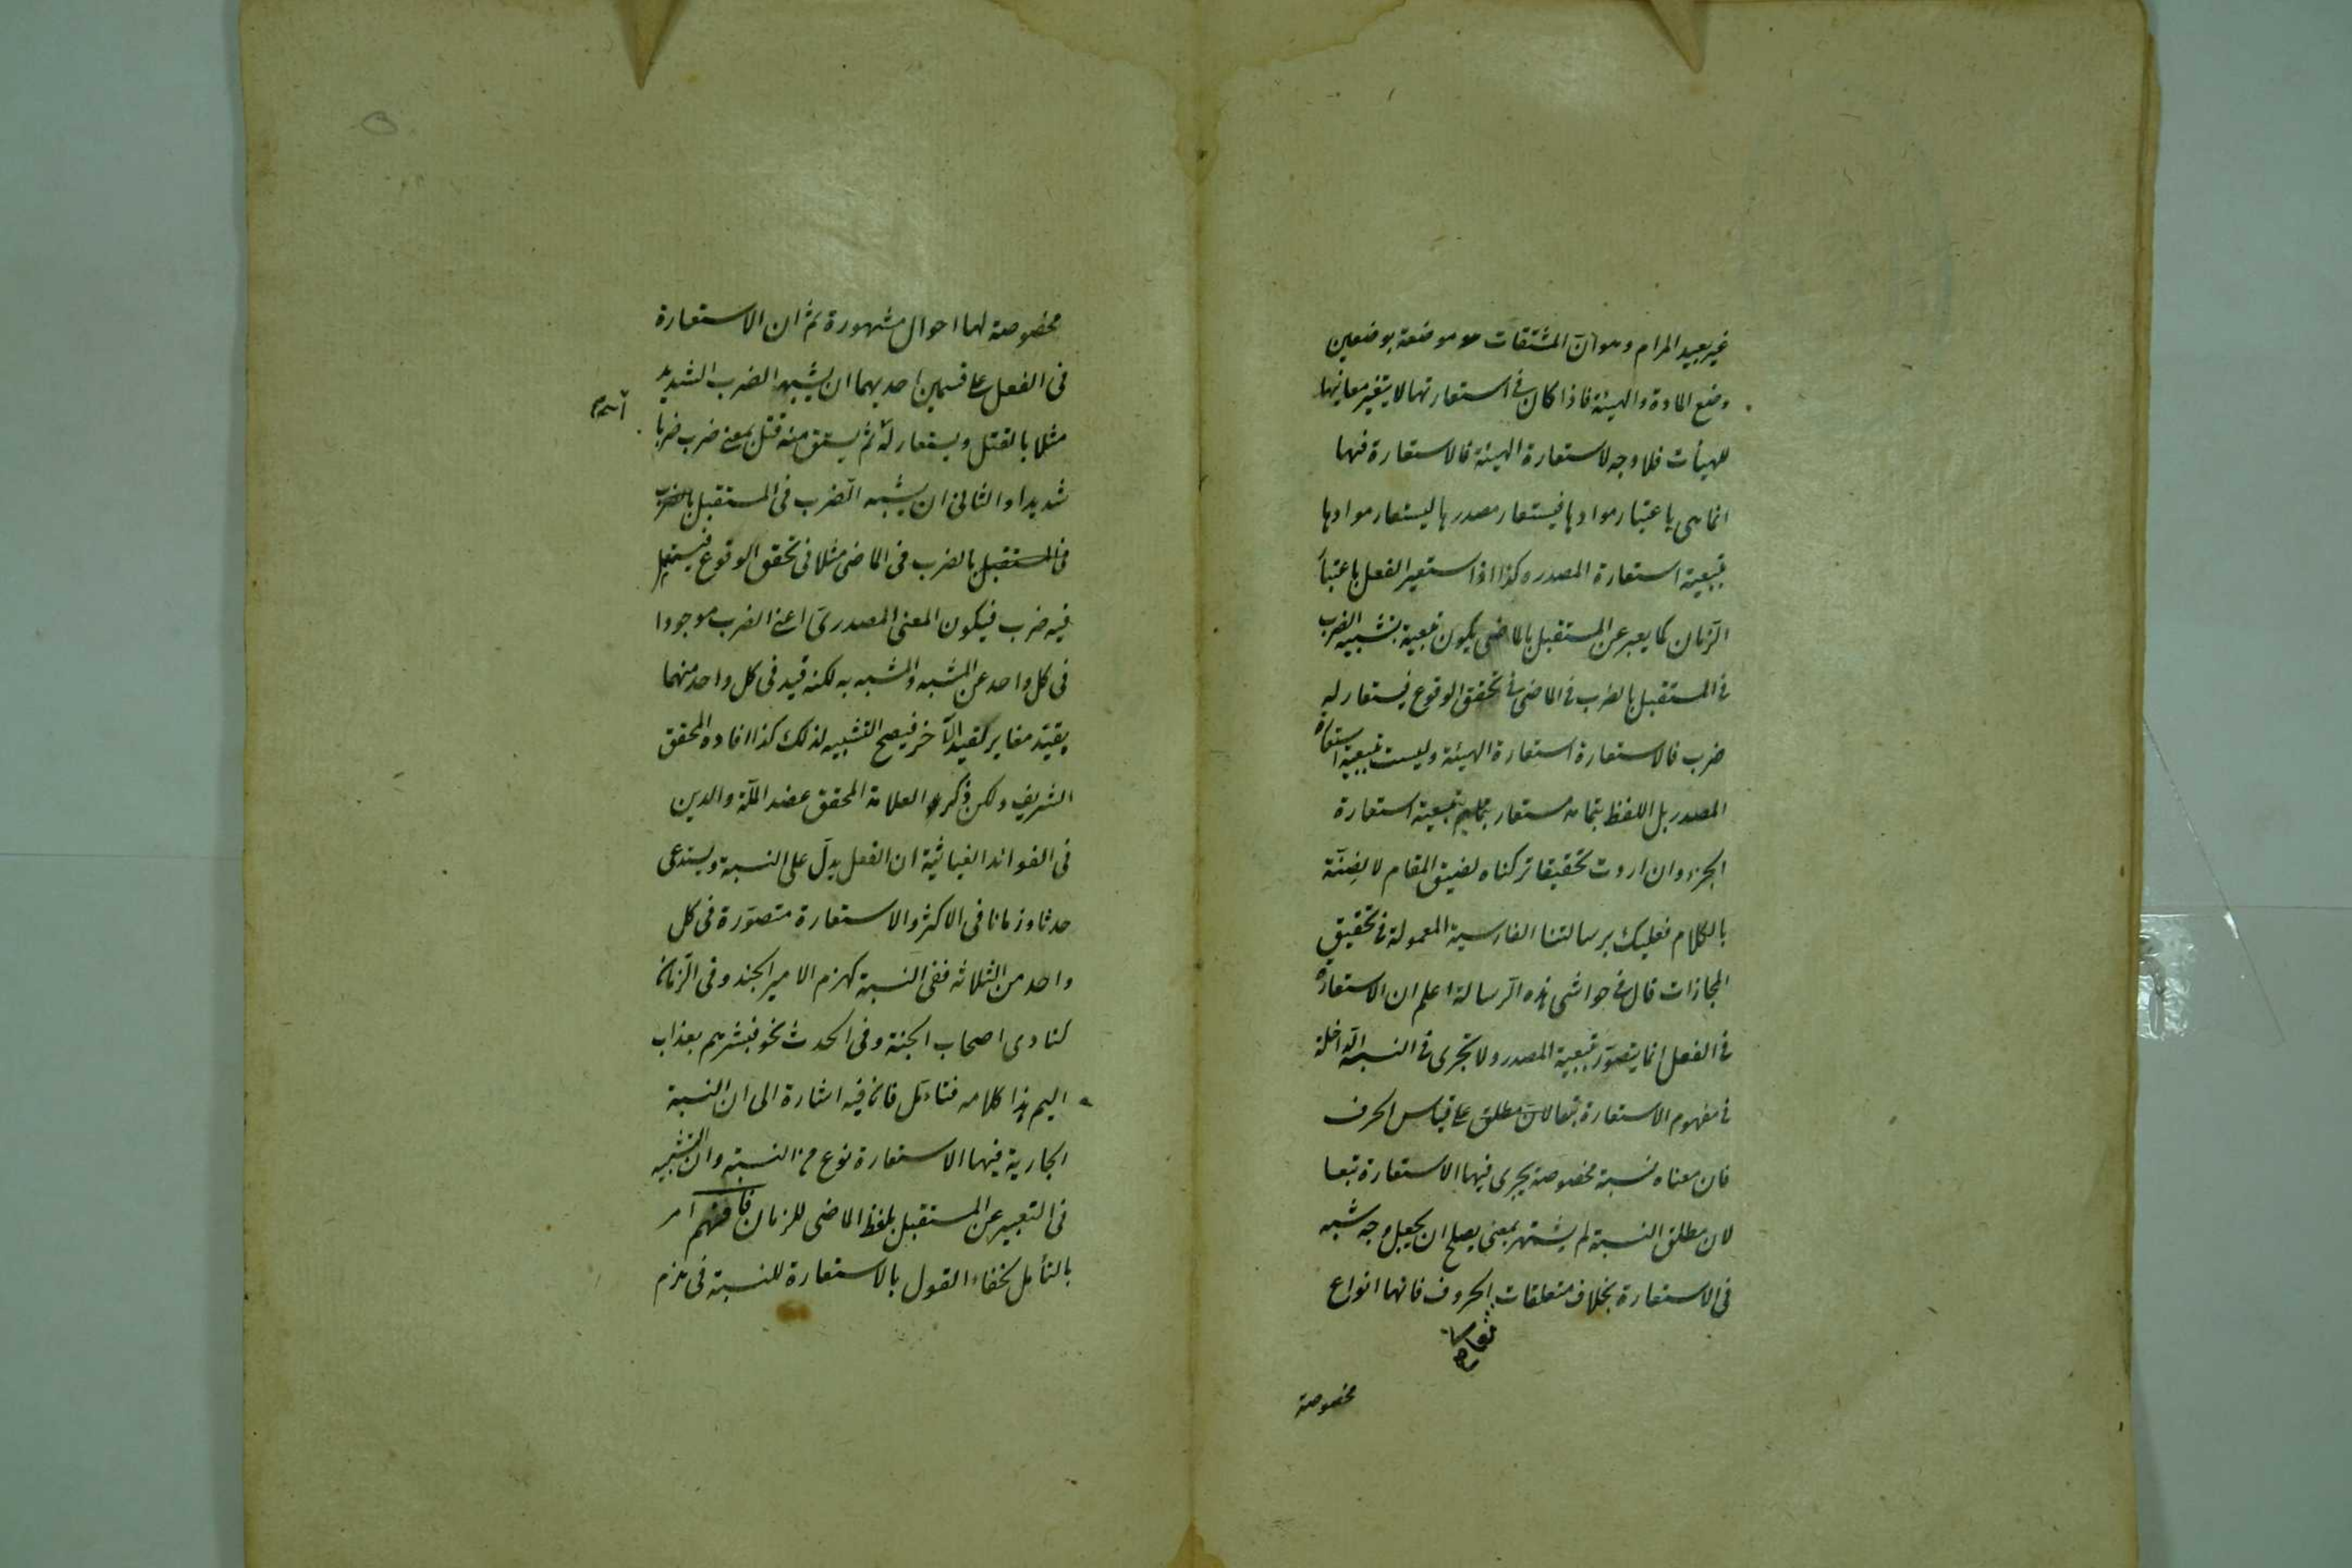 غير بعيد المرام وهو ان المشتقات موضعة بوضعين
وضع المادة والهيئة فاذا كان في استعارتها لا يتغير معانيها
للهيأت فلا وجه لاستعارة الهيئة فالاستعارة فيها
انما هي باعتبار موادها فيستعار مصدرها ليستعار موادها
بتبعية استعارة المصدر وكذا اذا استعير الفعل باعتبار
الزمان كما يعبر عن المستقبل بالماضي يكون تبعية بتشبيه الضرب
في المستقبل بالضرب في الماضي في تحقق الوقوع فيستعار له
ضرب فالاستعارة استعارة الهيئة وليست بتبعية استعارة
المصدر بل اللفظ بتمامه مستعار بتبعية استعارة
الجزء وان اردت تحقيقا تركناه لضيق المقام لا لضنّة
بالكلام فعليك برسالتنا الفارسية المعمولة في تحقيق
المجازات قال في حواشي هذه الرسالة اعلم ان الاستعارة
في الفعل انما يتصوّر بتبعية المصدر ولا تجري في النسبة الداخلة
في مفهوم الاستعارة تبعا لان مطلق على قياس الحرف
فان معناه نسبة مخصوصة يجري فيها الاستعارة تبعا
لان مطلق النسبة لم يشتهر بمعنى يصلح ان يجعل وجه شبه
في الاستعارة بخلاف متعلقات الحروف فانها انواع
مخصوصة
مخصوصة لها احوال مشهورة ثم ان الاستعارة
في الفعل على قسمين احديهما ان يشبه الضرب الشديد
مثلا بالقتل ويستعار له ثم يشتق منه قتل بمعنى ضرب ضربا
شديدا والثاني ان يشبه الضرب في المستقبل بالضرب
في المستقبل بالضرب في الماضي مثلا في تحقق الوقوع فيستعمل
فيه ضرب فيكون المعنى المصدري اعني الضرب موجودا
في كل واحد عن المشبه والمشبه به لكنه قيد في كل واحد منهما
بقيد مغاير لقيد الآخر فيصح التشبيه لذلك كذا افاده المحقق
الشريف ولكن ذكر العلامة المحقق عضد الملة والدين
في الفوائد الغياثية ان الفعل يدلّ على النسبة ويستدعى
حدثا وزمانا في الاكثر والاستعارة متصوّرة في كل
واحد من الثلاثة ففي النسبة كهزم الامير الجند وفي الزمان
كنادى اصحاب الجنة وفي الحدث نحو فبشرهم بعذاب
اليم هذا كلامه فتأمل فانّ فيه اشارة الى ان النسبة
الجارية فيها الاستعارة نوع من النسبة وان التشبيه
في التعبير عن المستقبل بلفظ الماضي للزمان فافهم امر
بالتأمل لخفاء القول بالاستعارة للنسبة في هزم